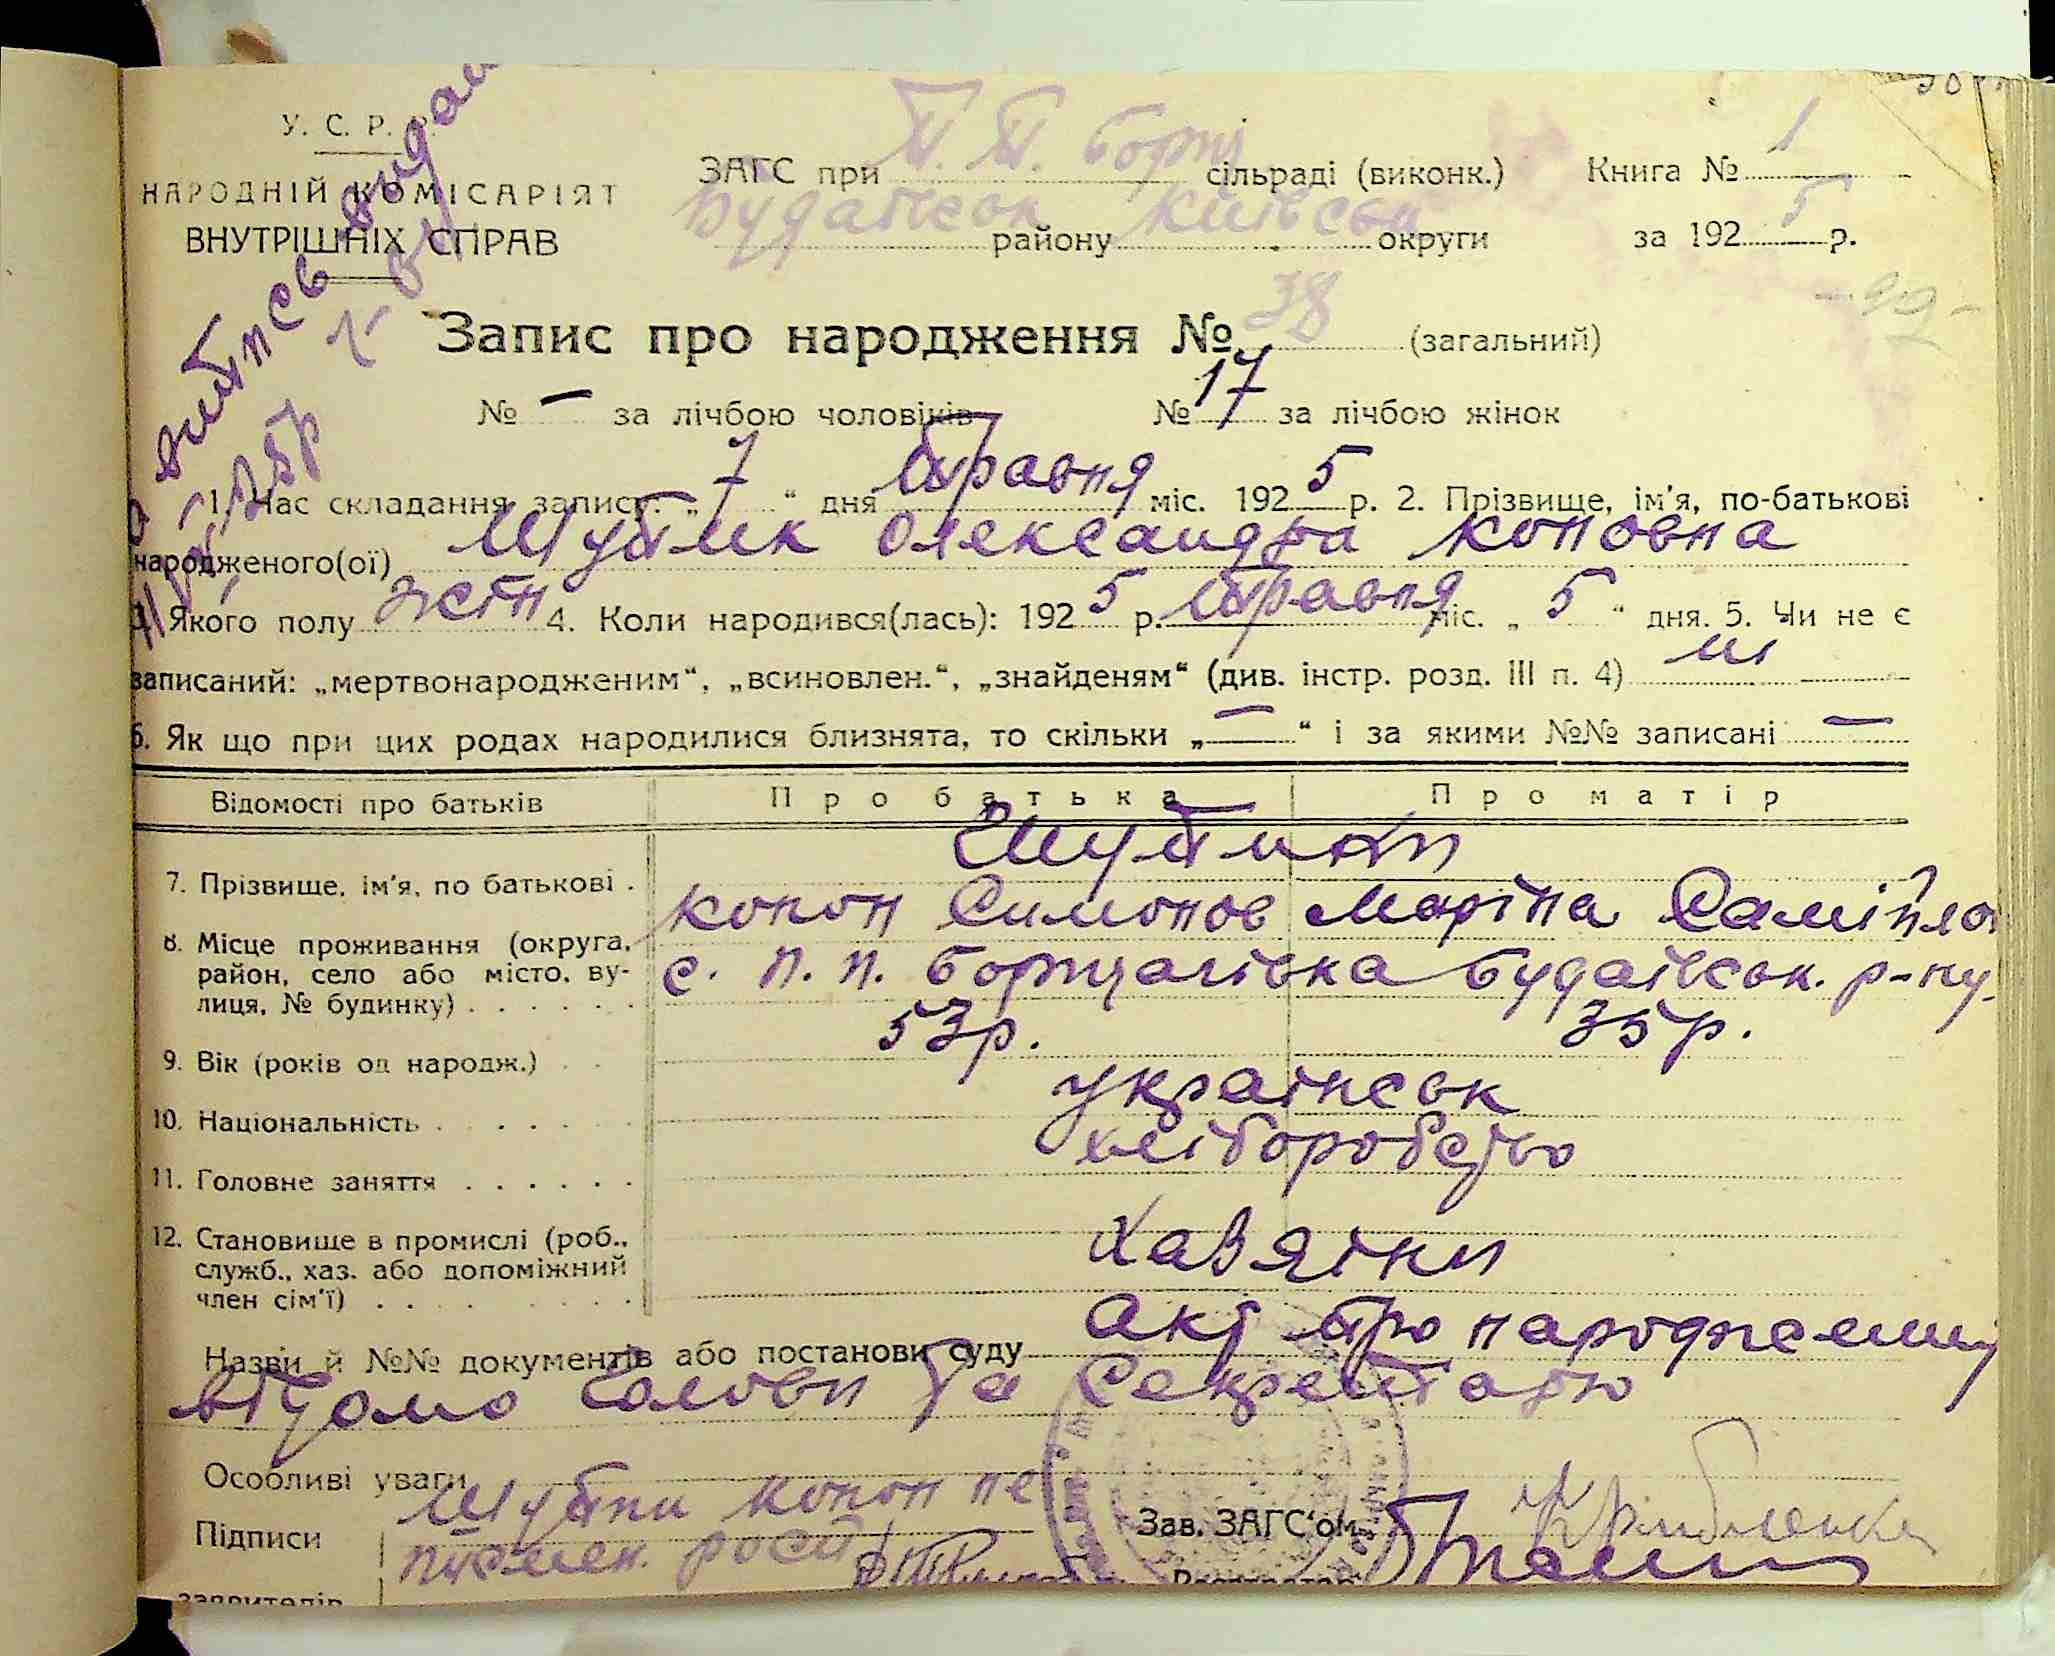 У. С. Р. Р.
НАРОДНІЙ КОМІСАРІЯТ
ВНУТРІШНІХ СПРАВ
ЗАГС при П. П. Борщ сільраді (виконк.) Книга № 1
Будаївськ району Київськ округи за 1925 р.
99
Запис про народження № 38 (загальний)
№ — за лічбою чоловіків № 17 за лічбою жінок
1. Час складання запису: „7“ дня Травня міс. 1925 р. 2. Прізвище, ім'я, по-батькові
народженого(ої) Шубик Олександра Коновна
3. Якого полу жін 4. Коли народився(лась): 1925 р. Травня міс. „5“ дня. 5. Чи не є
записаний: „мертвонародженим“, „всиновлен.“, „знайденям“ (див. інстр. розд. III п. 4) ні
6. Як що при цих родах народилися близнята, то скільки „—“ і за якими №№ записані —
Відомості про батьків Про батька Про матір
7. Прізвище, ім'я, по батькові . Шубики
Конон Симонов Маріна Самійлов
8. Місце проживання (округа, район, село або місто, вулиця, № будинку) . . . . . . с. П. П. Борщагівка Будаївськ. р-ну
9. Вік (років од народж.) . . 53 р. 35 р.
10. Національність . . . . . . українськ
11. Головне заняття . . . . . . хліборобство
12. Становище в промислі (роб., служб., хаз. або допоміжний член сім'ї) . . . . . . . . Хазяіки
Назви й №№ документів або постанови суду Акт про народження
відомо Голови та Секретарю
Особливі уваги
Підписи Шубик Конон не
письмен. росп
Зав. ЗАГС'ом
заявителів
випись видам